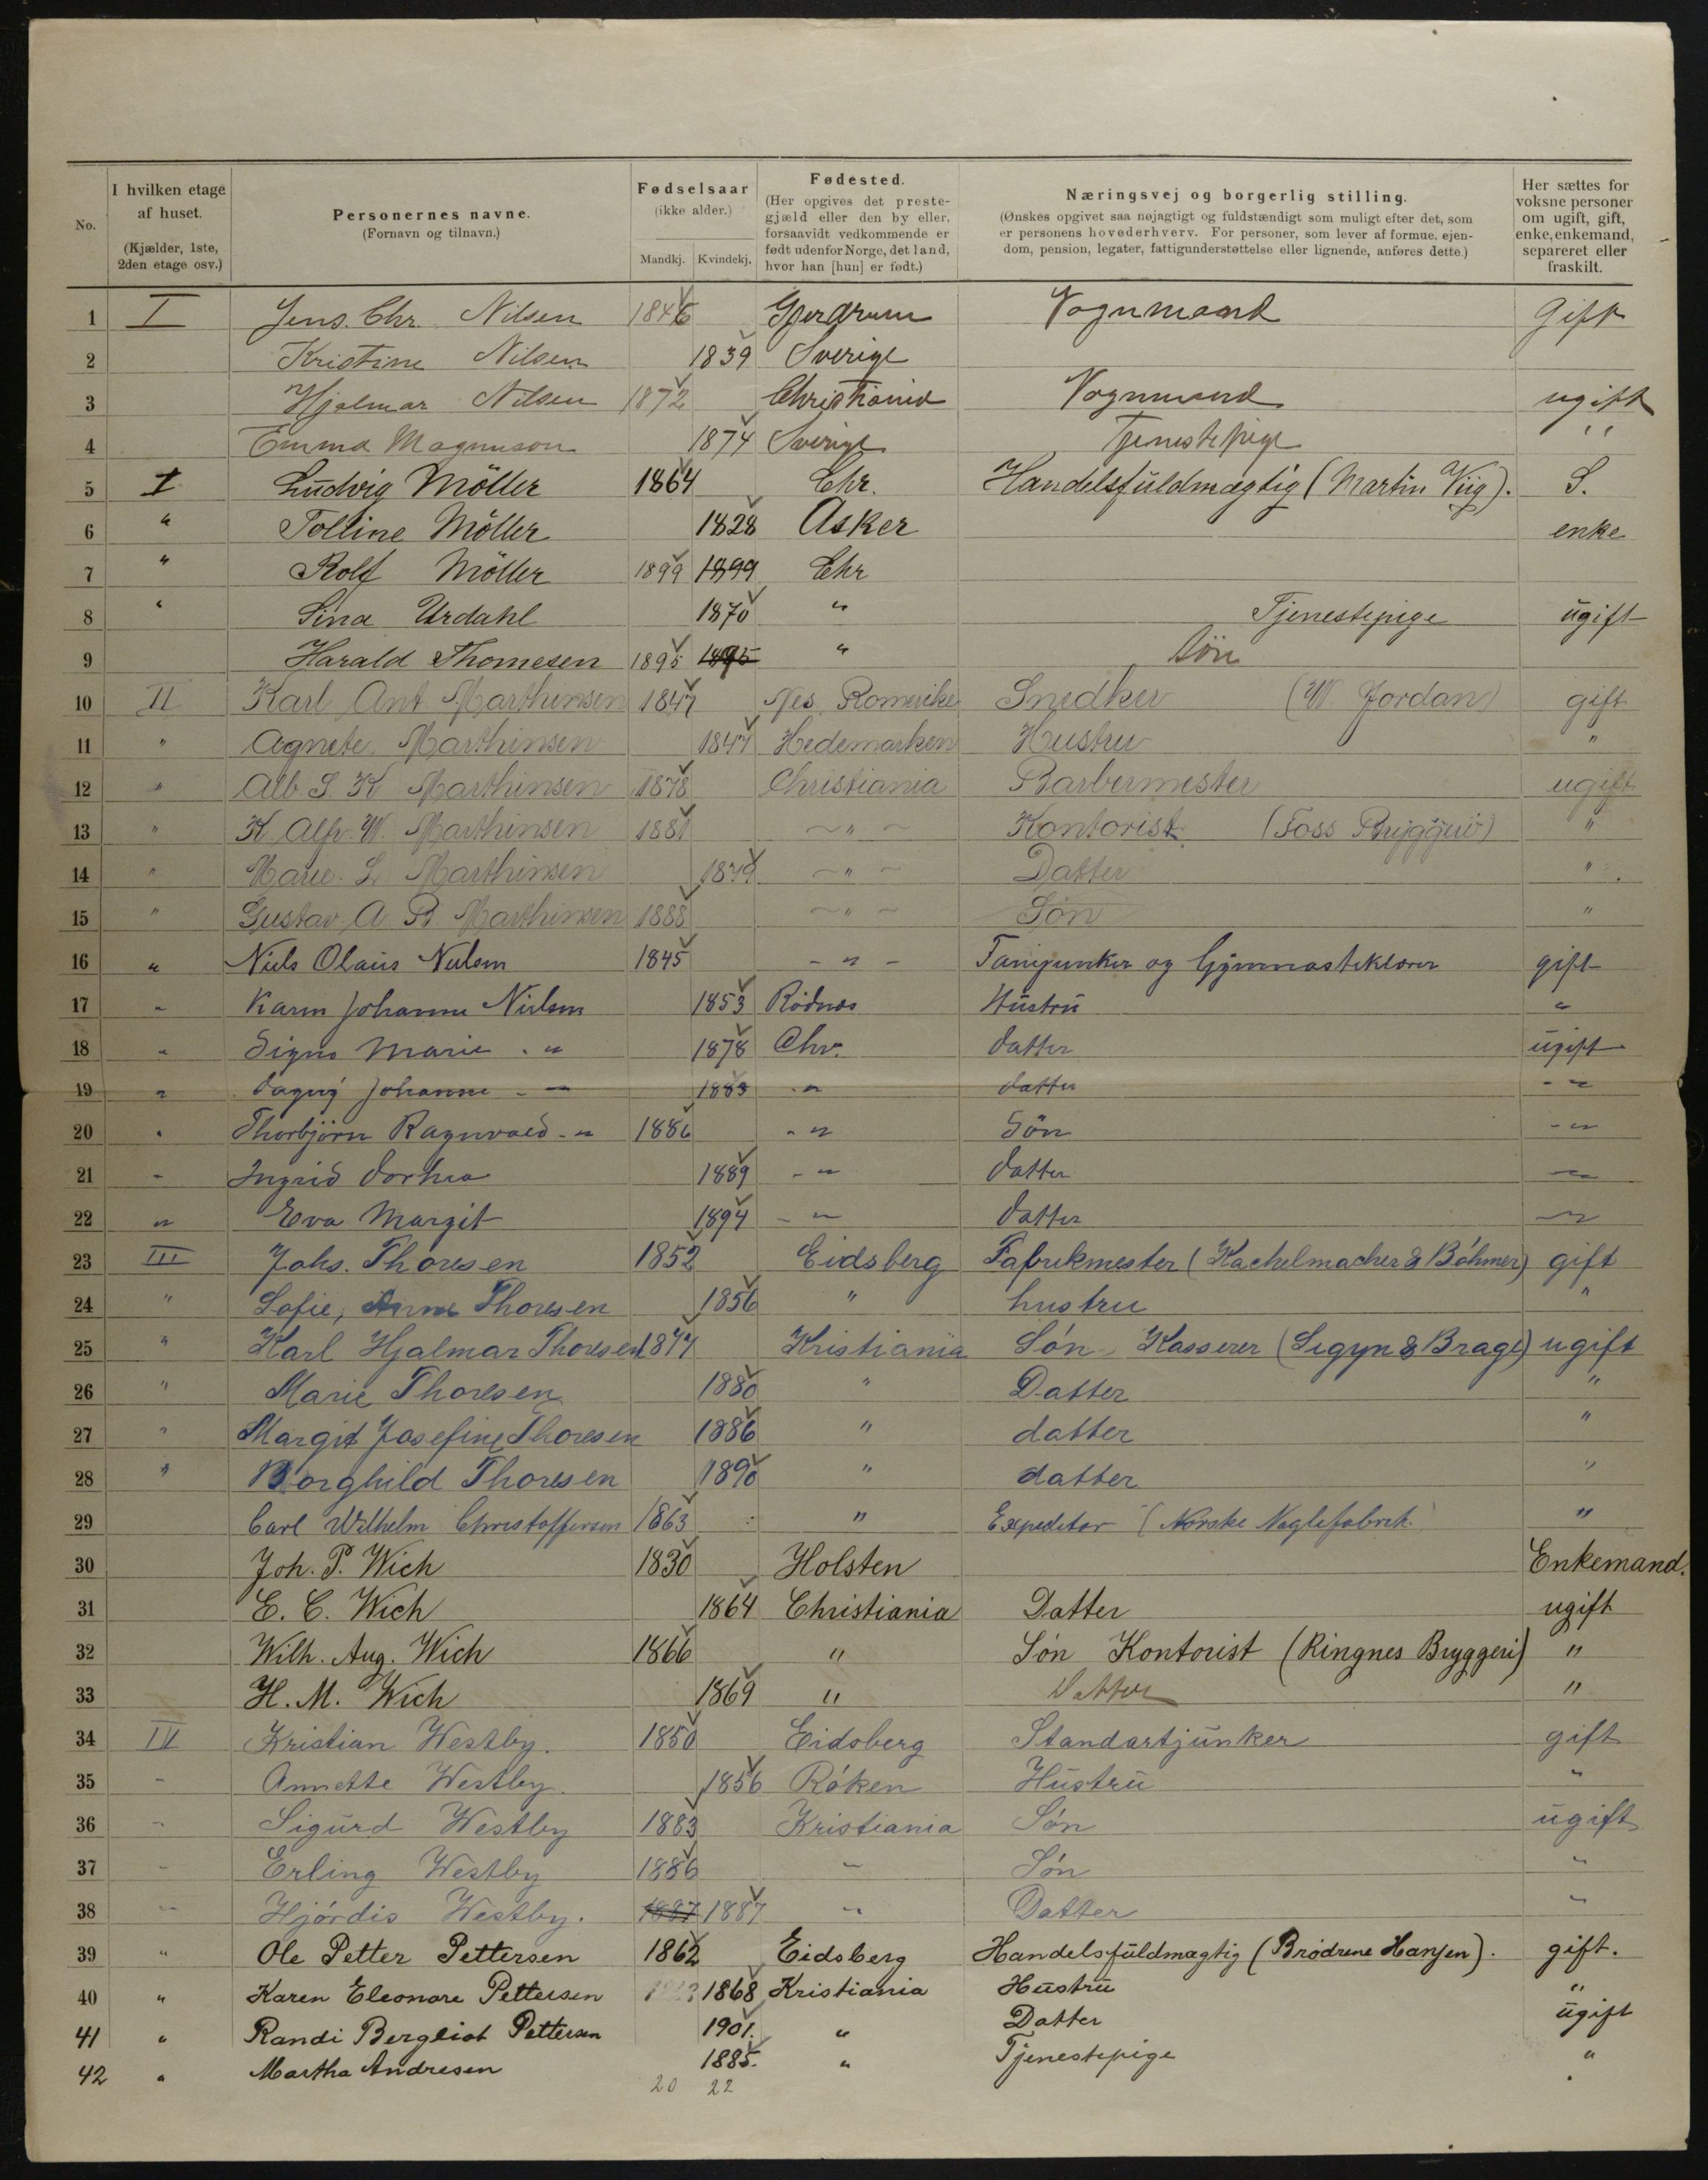 No. | I hvilken etage af huset. (Kjælder, 1ste, 2den etage osv.) | Personernes navne. (Fornavn og tilnavn.) | Fødselsaar (ikke alder.) Mandkj. Kvindekj. | Fødested. (Her opgives det prestegjæld eller den by eller, forsaavidt vedkommende er født udenfor Norge, det land, hvor han [hun] er født.) | Næringsvej og borgerlig stilling. (Ønskes opgivet saa nøjagtigt og fuldstændigt som muligt efter det, som er personens hovederhverv. For personer, som lever af formue, ejendom, pension, legater, fattigunderstøttelse eller lignende, anføres dette.) | Her sættes for voksne personer om ugift, gift, enke, enkemand, separeret eller fraskilt.
1 I Jens. Chr. Nilsen 1846 Gjerdrum Vognmand Gift
2 Kristine Nilsen 1839 Sverige
3 Hjalmar Nilsen 1872 Christiania Vognmand ugift
4 Emma Magnuson 1874 Sverige Tjenestepige "
5 I Ludvig Möller 1864 Chr. Handelsfuldmægtig (Martin Viig). S.
6 " Tolline Möller 1828 Asker enke
7 " Rolf Möller 1899 1899 Chr
8 " Sina Urdahl 1870 " Tjenestepige ugift
9 Harald Thomesen 1895 1895 " Sön
10 II Karl Ant Marthinsen 1847 Nes Romerike Snedker (W. Jordan) gift
11 " Agnete Marthinsen 1847 Hedemarken Hustru "
12 " Alb. S. K Marthinsen 1878 Christiania Barbermester ugift
13 " K Alfr. W. Marthinsen 1881 " Kontorist (Foss Bryggeri) "
14 " Marie L Marthinsen 1879 " Datter "
15 " Gustav A B Marthinsen 1888 " Søn "
16 " Niels Olaus Nielsen 1845 " Fanejunker og Gymnastiklærer gift
17 " Karen Johanne Nielsen 1853 Rødnes Hustru "
18 " Signe Marie " 1878 Chr. datter ugift
19 " Dagny Johanne " 1883 " datter "
20 " Thorbjørn Ragnvald " 1886 " Sön "
21 " Ingrid Dorthea 1889 " datter "
22 " Eva Margit 1894 " datter "
23 III Johs. Thoresen 1852 Eidsberg Fabrikmester (Kachelmacher & Böhmer) gift
24 " Sofie, Anne Thoresen 1856 " hustru "
25 " Karl Hjalmar Thoresen 1877 Kristiania Søn Kasserer (Sigyn & Brage) ugift
26 " Marie Thoresen 1880 " Datter "
27 " Margit Josefine Thoresen 1886 " datter "
28 " Borghild Thoresen 1890 " datter "
29 Carl Wilhelm Christoffersen 1863 " Expeditør (Norske Naglefabrik. "
30 Joh. P. Wich 1830 Holsten Enkemand.
31 E. C. Wich 1864 Christiania Datter ugift
32 Wilh. Aug. Wich 1866 " Søn Kontorist (Ringnes Bryggeri) "
33 H. M. Wich 1869 " Datter "
34 IV Kristian Westby. 1850 Eidsberg Standartjunker gift
35 " Annette Westby. 1856 Røken Hustru "
36 " Sigurd Westby 1883 Kristiania Søn ugift
37 " Erling Westby 1886 " Søn "
38 " Hjørdis Westby. 1887 1887 " Datter "
39 " Ole Petter Pettersen 1862 Eidsberg Handelsfuldmægtig (Brødrene Hansen). gift.
40 " Karen Eleonore Pettersen 1868 Kristiania Hustru "
41 " Randi Bergliot Pettersen 1901. " Datter ugift
42 " Martha Andresen 1885. " Tjenestepige "
20 22